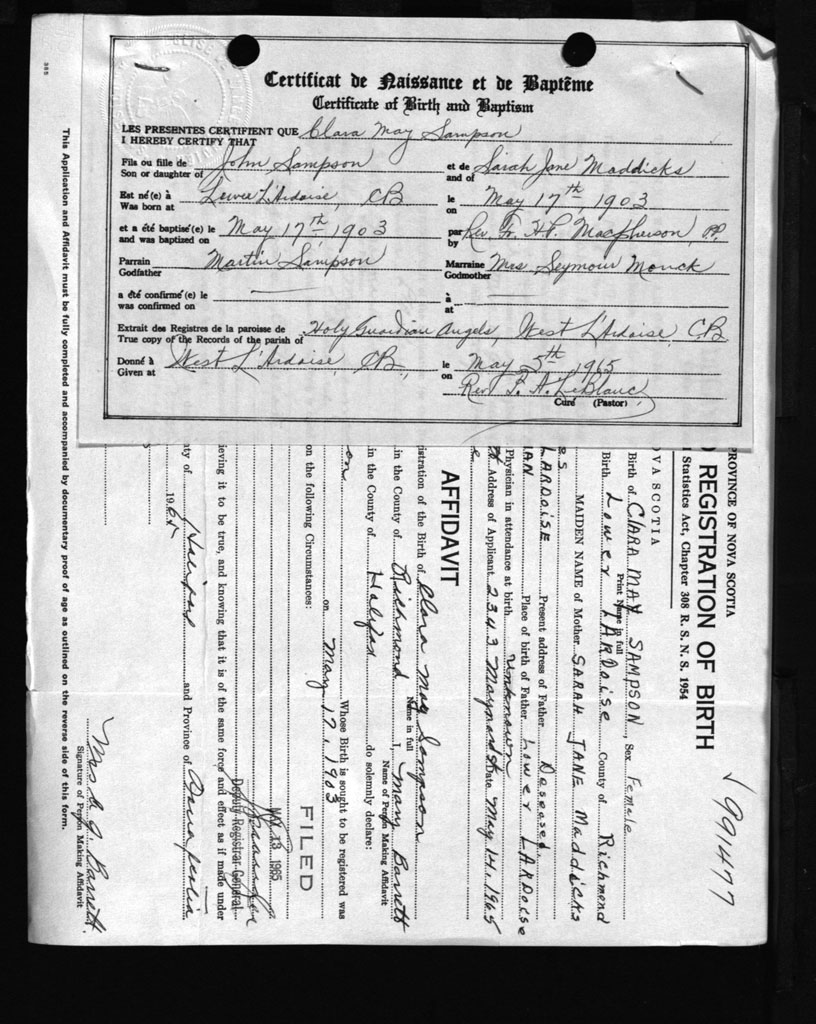 Certificat de Naissance et de Baptême
Certificate of Birth and Baptism
LES PRESENTES CERTIFIENT QUE Clara May Sampson
I HEREBY CERTIFY THAT
Fils ou fille de John Sampson et de Sarah Jane Maddicks
Son or daughter of and of
Est né(e) à Lower L'Ardoise, CB le May 17th 1903
Was born at on
et a été baptisé(e) le May 17th 1903 par Rev. Fr. H.P. Macpherson, P.P.
and was baptized on by
Parrain Martin Sampson Marraine Mrs Seymour Monck
Godfather Godmother
a été confirmé(e) le à
was confirmed on at
Extrait des Registres de la paroisse de Holy Guardian Angels, West L'Ardoise, C.B.
True copy of the Records of the parish of
Donné à West L'Ardoise, CB., le May 5th, 1965
Given at on Rev. F. A. LeBlanc
Curé (Pastor)
991477
PROVINCE OF NOVA SCOTIA
REGISTRATION OF BIRTH
Statistics Act, Chapter 308 R. S. N. S. 1954
OVA SCOTIA
Birth of CLARA MAY SAMPSON, Sex Female
Print Name in full
Birth Lower LARdoise County of Richmond
MAIDEN NAME of Mother SARAH JANE MaddicKs
LARDOISE Present address of Father Deseased
Place of birth of Father Lower LARdoise
Physician in attendance at birth Unknown
Address of Applicant 2343 Maynard St Date May 14, 1965
AFFIDAVIT
istration of the Birth of Clara May Sampson
Name in full
in the County of Richmond I, Mary Barrett
Name of Person Making Affidavit
in the County of Halifax do solemnly declare:
Whose Birth is sought to be registered was
on on May 17, 1903
on the following Circumstances:
FILED
MAY 13 1965
Deputy Registrar General
ieving it to be true, and knowing that it is of the same force and effect as if made under
ty of Halifax and Province of Nova Scotia
1965
Mrs A. J. Barrett
Signature of Person Making Affidavit
This Application and Affidavit must be fully completed and accompanied by documentary proof of age as outlined on the reverse side of this form.